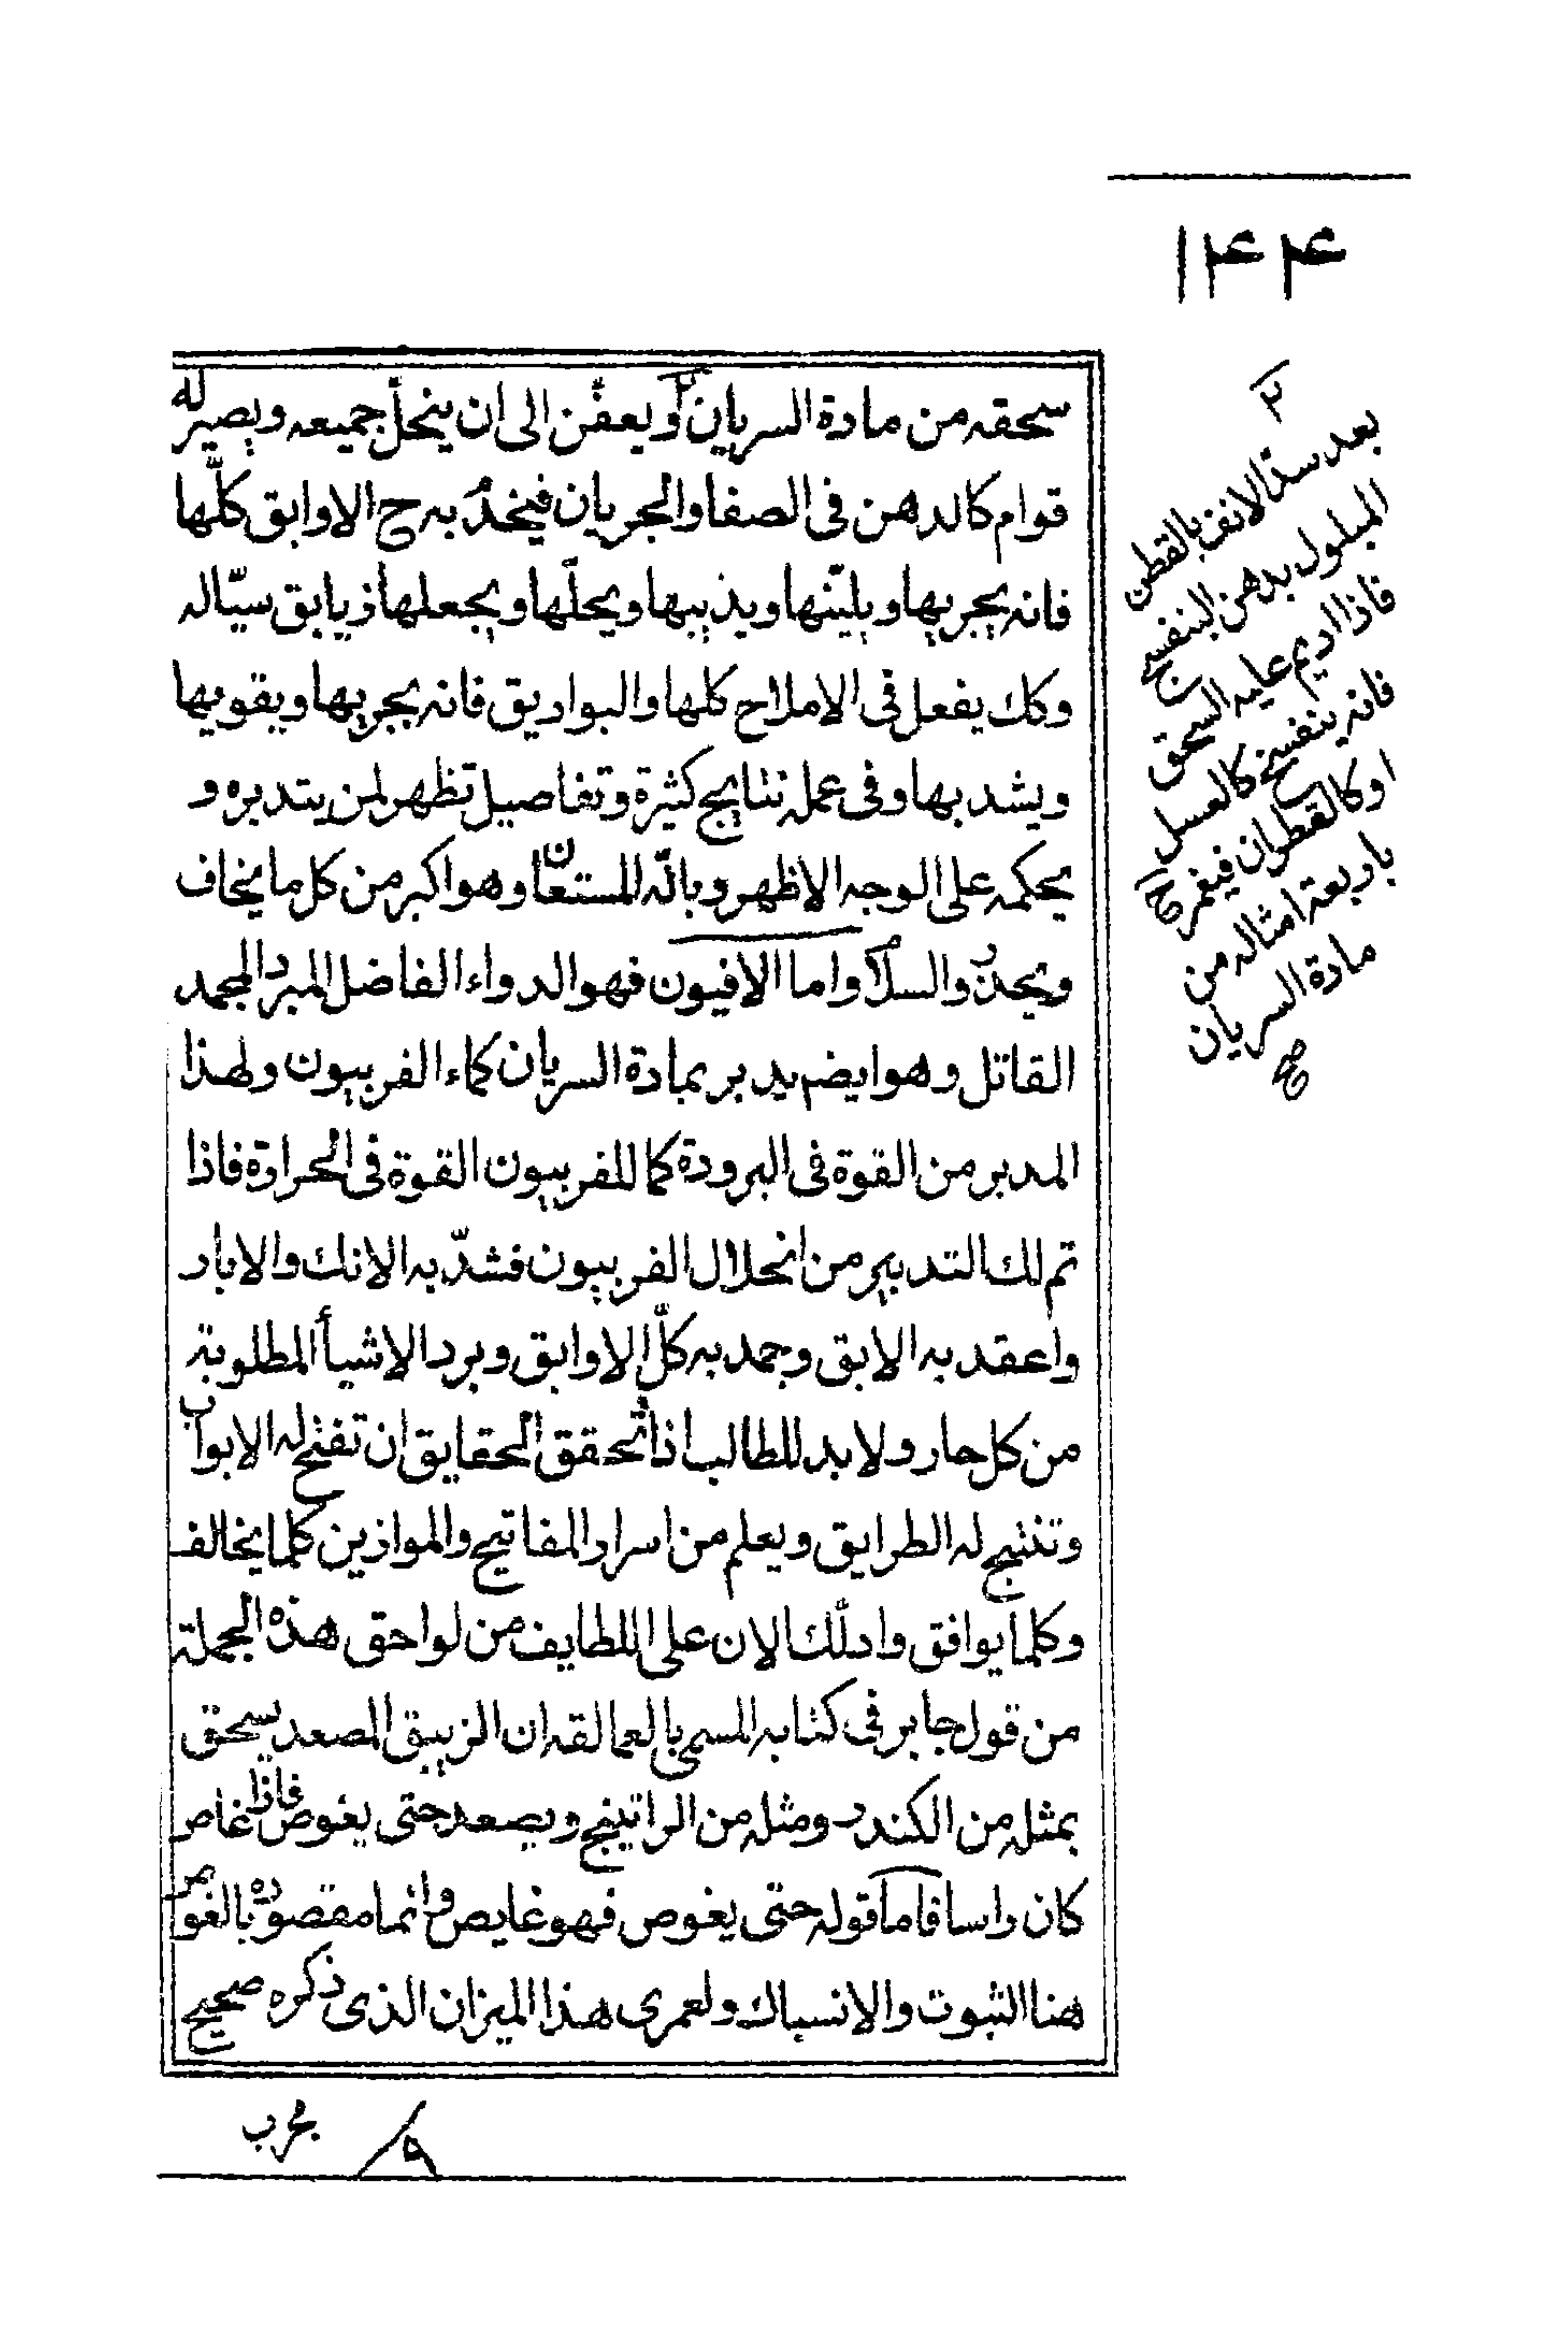 ۱۴۴
سحقه من مادة السريان ويعفّن الى ان ينحلّ جميعه ويصير له
قوام كالدهن فى الصفا والجريان فيخدم به ح الاوابق كلّها
فانه يجريها ويليّنها ويذيبها ويحلّها ويجعلها زيابق سيّاله
وكك يفعل فى الاملاح كلها والبواريق فانه يجريها ويقويها
ويشد بها وفى عمله نتايج كثيرة وتفاصيل تظهر لمن يتدبره و
يحكمه على الوجه الاظهر وباللّه المستعان وهو اكبر من كل ما يخاف
ويحذر والسلم واما الافيون فهو الدواء الفاضل المبرد المجمد
القاتل وهو ايضم يدبر بمادة السريان كماء الفربيون ولهذا
المدبر من القوة فى البرودة كما للفربيون القوة فى الحرارة فاذا
تم لك التدبير من انحلال الفربيون فشدّ به الانك والابار
واعقد به الابق وجمد به كلّ الاوابق وبرد الاشيأ المطلوبة
من كل حار ولا بد للطالب اذا تحقق الحقايق ان تفتح له الابواب
وتنتج له الطرايق ويعلم من اسرار المفاتيح والموازين كلما يخالف
وكلما يوافق وادلّك الان على اللطايف من لواحق هذه الجملة
من قول جابر فى كتابه المسمى بالعمالقه ان الزيبق المصعد يسحق
بمثله من الكندر ومثله من الراتينج ويصعد حتى يغوص فاذا غاص
كان راسا فاما قوله حتى يغوص فهو غايص وانما مقصوده بالغوص
هنا الثبوت والانسباك ولعمرى هذا الميزان الذى ذكره صحيح
مجرب
۲
بعد سدّ الانف بالقطن
المبلول بدهن البنفسج
فاذا اديم عليه السحق
فانه ينفسخ كالعسل
او كالقطران فيغمر ح
باربعة امثاله من
مادة السريان
صح